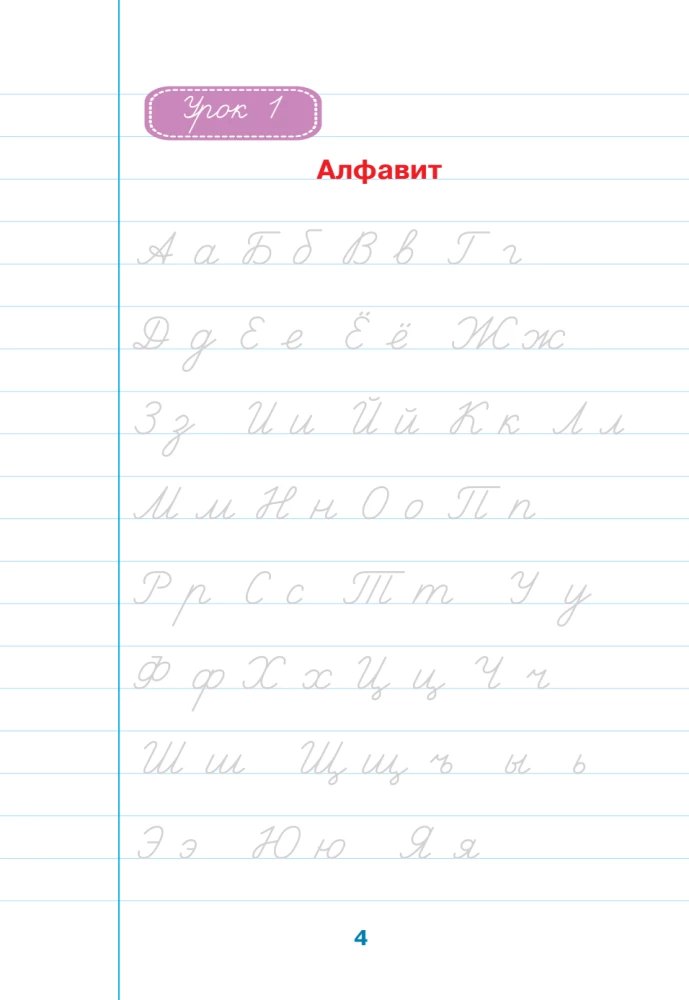 Урок 1
Алфавит
А а Б б В в Г г
Д д Е е Ё ё Ж ж
З з И и Й й К к Л л
М м Н н О о П п
Р р С с Т т У у
Ф ф Х х Ц ц Ч ч
Ш ш Щ щ ъ ы ь
Э э Ю ю Я я
4